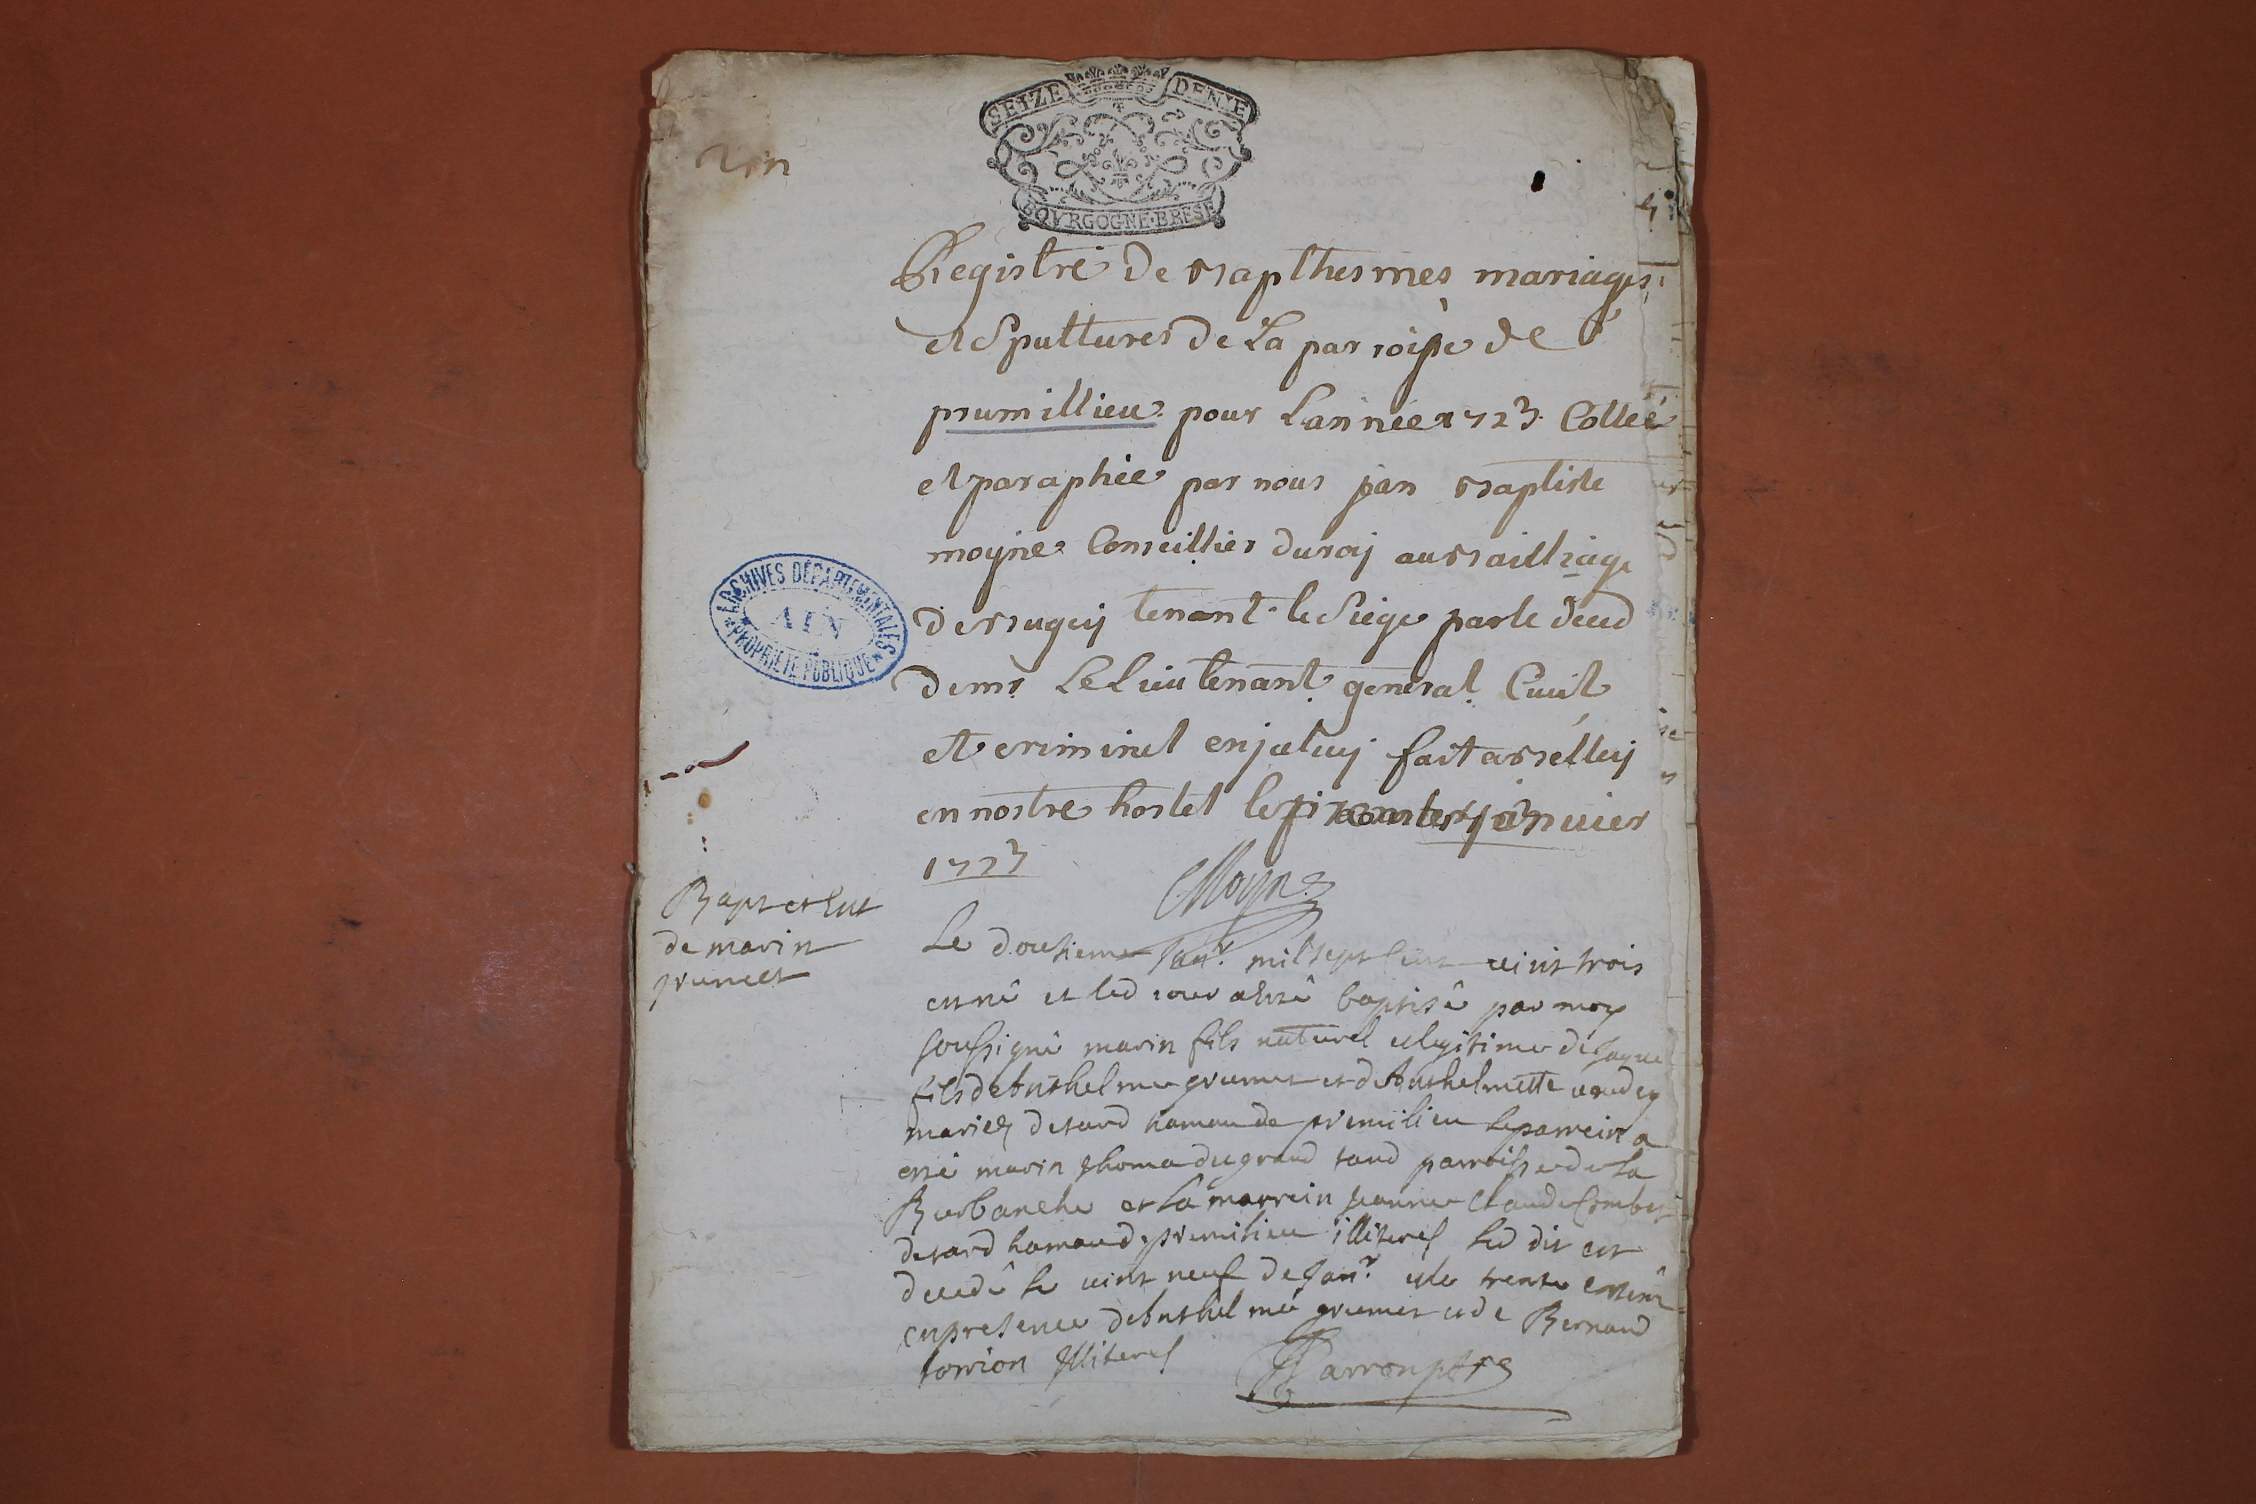 SEIZE DENIE
BOVRGOGNE·BRESE
Registre de bapthesmes mariages
et Spultures de La parroisse de
prumillieu pour Lannée 1723 Cottée
et paraphée par nous jean baptiste
moyne Conseillier du roy au bailliage
de bugey tenant le Siege par le deced
de mr Le Lieutenant general Civil
et criminel en jceluy fait a belley
en nostre hostel le janvier
1723
Moyne
ARCHIVES DÉPARTEMENTALES
AIN
PROPRIÉTÉ PUBLIQUE
Bapt et Sut
de marin
grumet
Le dousieme janr. mil sept Cent vint trois
est né et led iour a esté baptisé par moy
soussigné marin fils naturel et legitime de Jaque
fils de Anthelme grumet et de Anthelmette
mariés de tard hamau de premilieu le parrein a
esté marin thoma du grand tard parroisse de La
Burbanche et La marrein jeanne Claude Combet
de tard hamau de premilieu illiterés led dit est
decedé le vint neuf de Janr. et le trente enterré
en presence de Anthelme grumet et de Bernard
torrion Illiterés Parron ptre